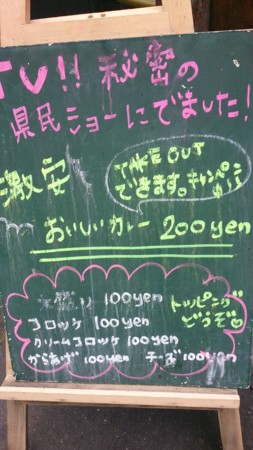 TV!! 秘密の
県民ショーにでました!
激安
TAKE OUT
できます。キャンペーン
おいしいカレー 200yen
100yen
コロッケ 100yen
クリームコロッケ 100yen
からあげ 100yen チーズ 100yen
トッピング
どうぞ